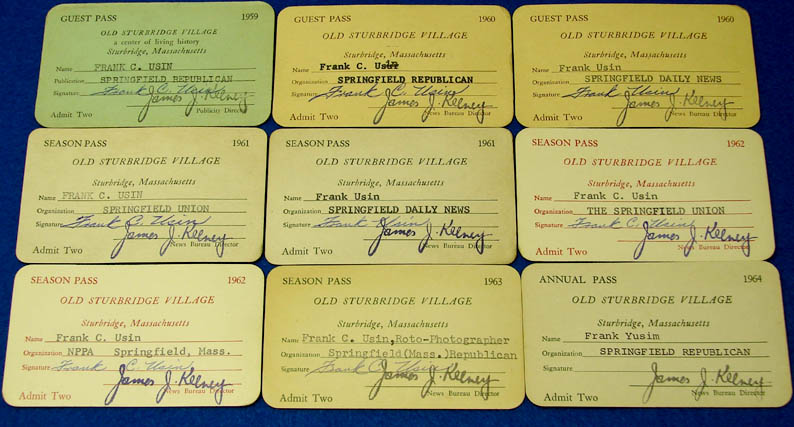 GUEST PASS 1959
OLD STURBRIDGE VILLAGE
a center of living history
Sturbridge, Massachusetts
Name FRANK C. USIN
Publication SPRINGFIELD REPUBLICAN
Signature Frank C. Usin
James J. Kelney
Admit Two Publicity Director
GUEST PASS 1960
OLD STURBRIDGE VILLAGE
Sturbridge, Massachusetts
Name Frank C. Usin
Organization SPRINGFIELD REPUBLICAN
Signature Frank C. Usin
James J. Kelney
Admit Two News Bureau Director
GUEST PASS 1960
OLD STURBRIDGE VILLAGE
Sturbridge, Massachusetts
Name Frank Usin
Organization SPRINGFIELD DAILY NEWS
Signature Frank Usin
James J. Kelney
Admit Two News Bureau Director
SEASON PASS 1961
OLD STURBRIDGE VILLAGE
Sturbridge, Massachusetts
Name FRANK C. USIN
Organization SPRINGFIELD UNION
Signature Frank C. Usin
James J. Kelney
Admit Two News Bureau Director
SEASON PASS 1961
OLD STURBRIDGE VILLAGE
Sturbridge, Massachusetts
Name Frank Usin
Organization SPRINGFIELD DAILY NEWS
Signature Frank Usin
James J. Kelney
Admit Two News Bureau Director
SEASON PASS 1962
OLD STURBRIDGE VILLAGE
Sturbridge, Massachusetts
Name Frank C. Usin
Organization THE SPRINGFIELD UNION
Signature Frank C. Usin
James J. Kelney
Admit Two News Bureau Director
SEASON PASS 1962
OLD STURBRIDGE VILLAGE
Sturbridge, Massachusetts
Name Frank C. Usin
Organization NPPA Springfield, Mass.
Signature Frank C. Usin
James J. Kelney
Admit Two News Bureau Director
SEASON PASS 1963
OLD STURBRIDGE VILLAGE
Sturbridge, Massachusetts
Name Frank C. Usin,Roto-Photographer
Organization Springfield(Mass.)Republican
Signature Frank C. Usin
James J. Kelney
Admit Two News Bureau Director
ANNUAL PASS 1964
OLD STURBRIDGE VILLAGE
Sturbridge, Massachusetts
Name Frank Yusim
Organization SPRINGFIELD REPUBLICAN
Signature
James J. Kelney
Admit Two News Bureau Director